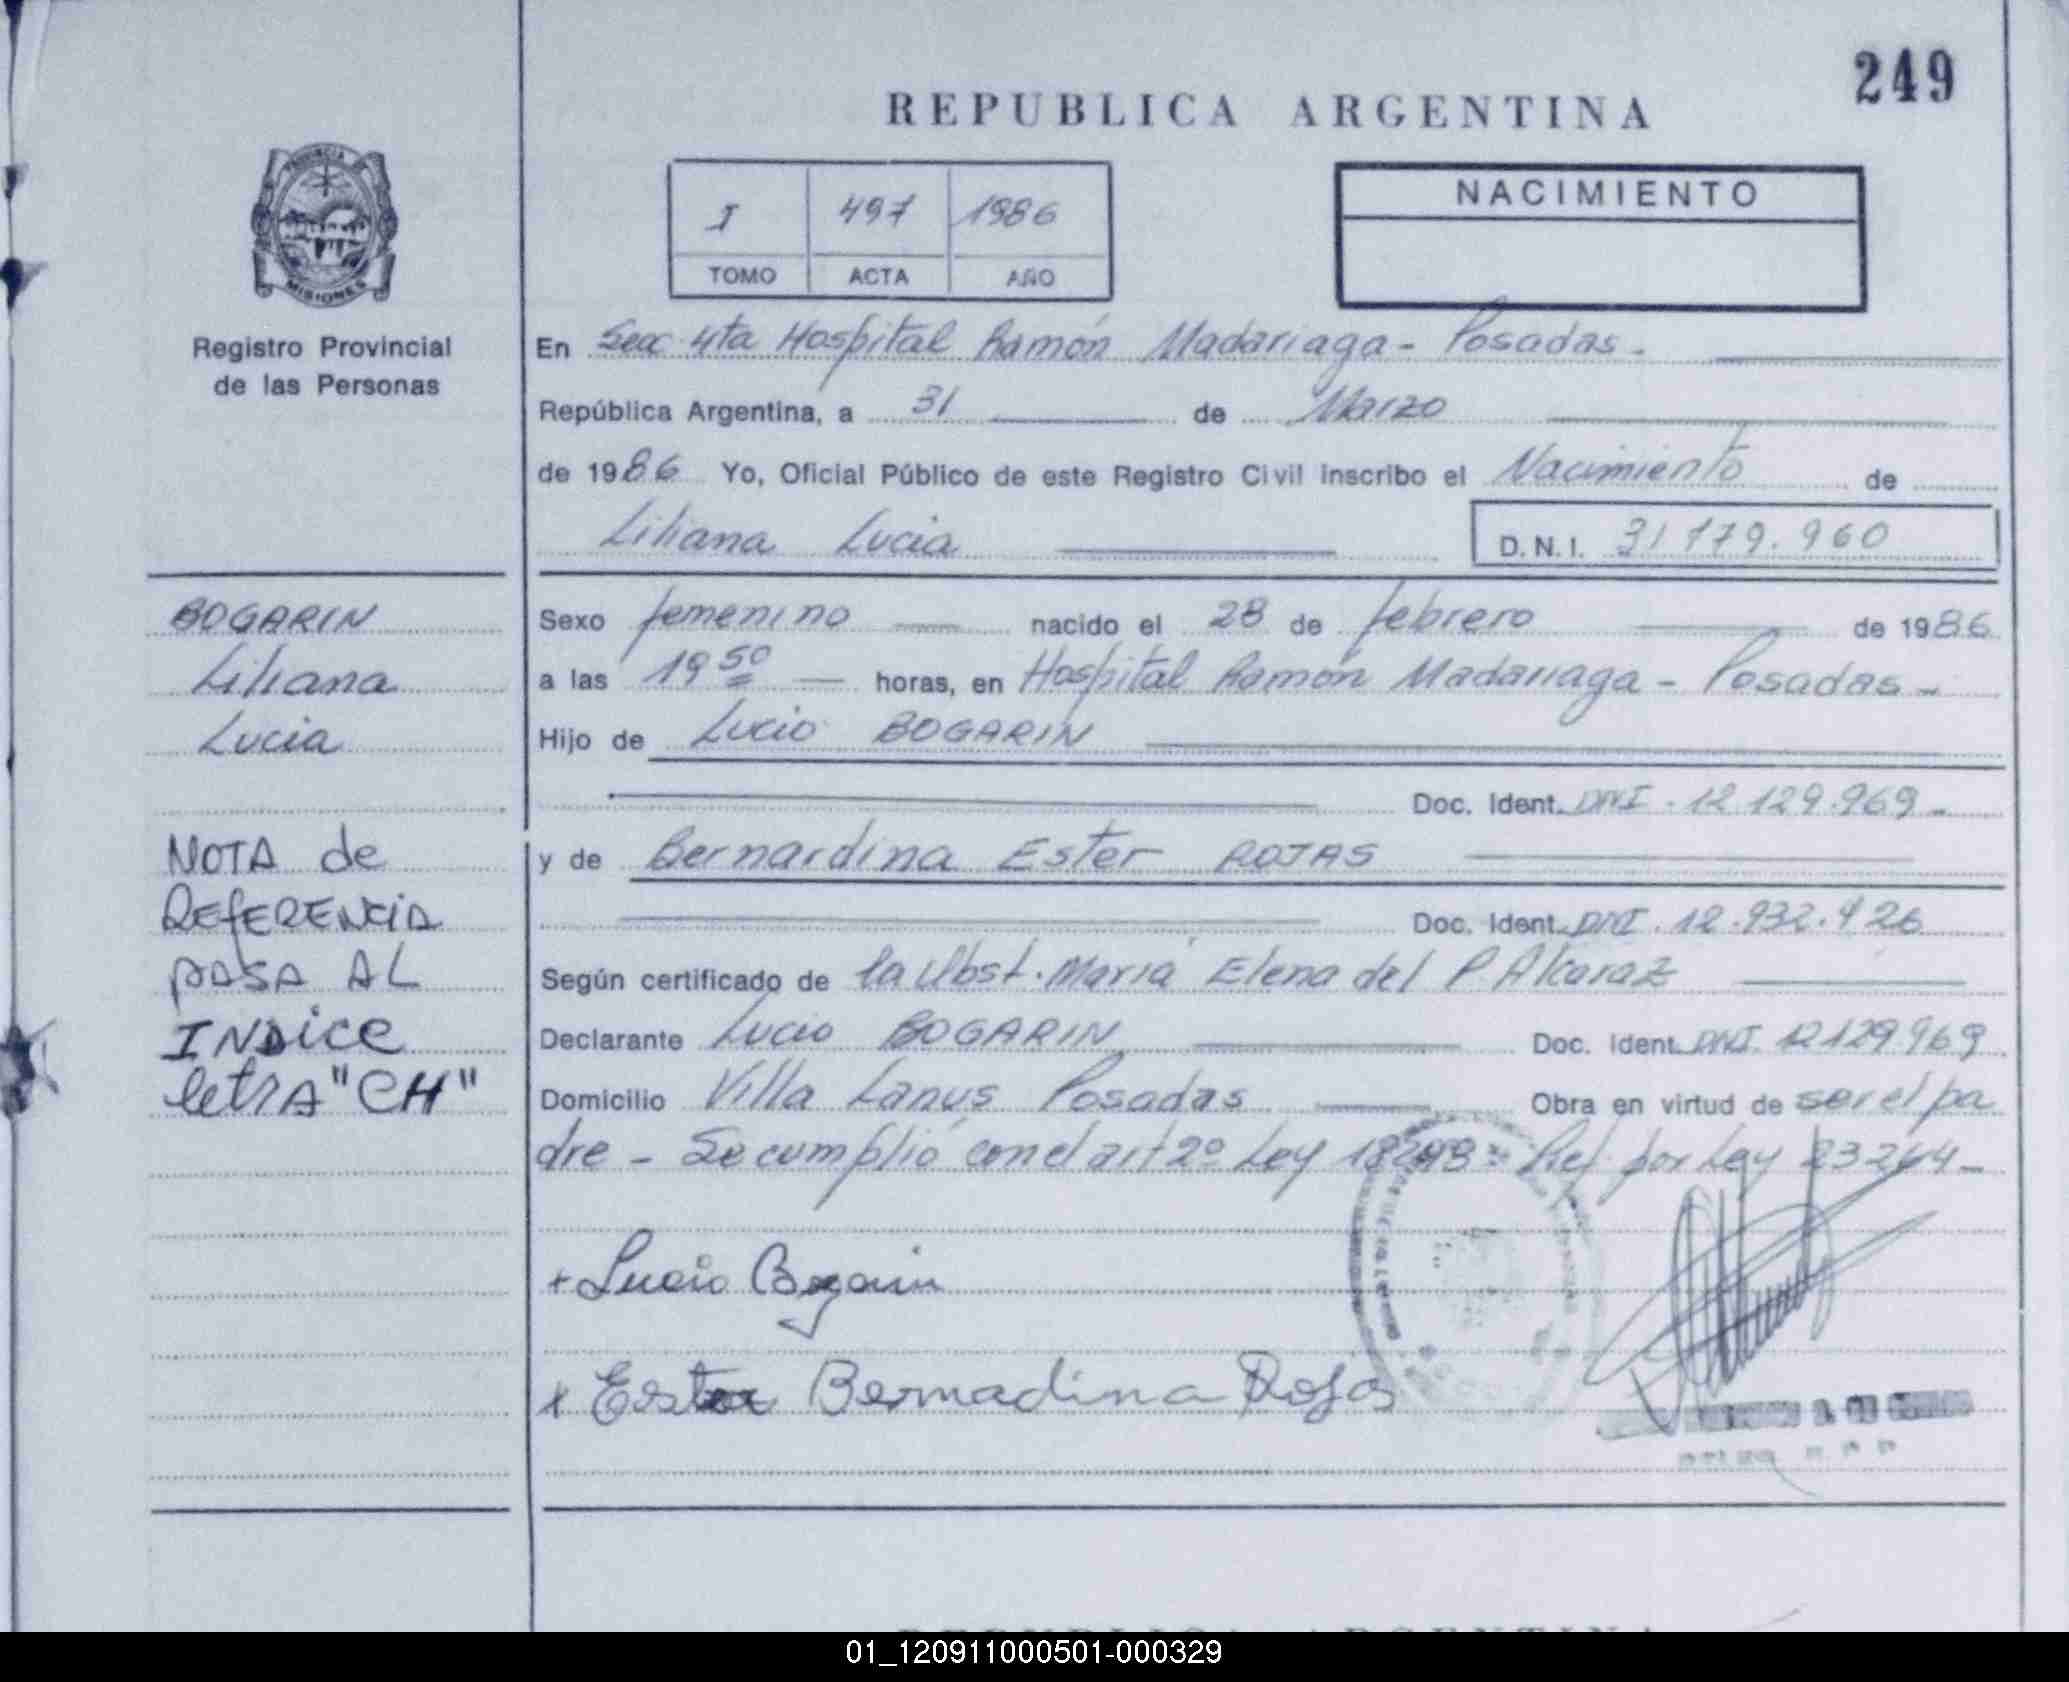 249
REPUBLICA ARGENTINA
PROVINCIA
MISIONES
Registro Provincial
de las Personas
I 497 1986
TOMO ACTA AÑO
NACIMIENTO
En Secc 4ta Hospital Ramón Madariaga - Posadas -
República Argentina, a 31 de Marzo
de 1986 Yo, Oficial Público de este Registro Civil inscribo el Nacimiento de
Liliana Lucia D.N.I. 31179.960
BOGARIN
Liliana
Lucia
Sexo femenino nacido el 28 de febrero de 1986
a las 19 50 horas, en Hospital Ramón Madariaga - Posadas -
Hijo de Lucio BOGARIN
Doc. Ident. DNI. 12 129.969 -
y de Bernardina Ester ROJAS
Doc. Ident. DNI. 12.932.426
Según certificado de la Obst. María Elena del P. Alcaraz
Declarante Lucio BOGARIN Doc. Ident. DNI 12129969
Domicilio Villa Lanús Posadas Obra en virtud de ser el pa
dre - Se cumplió con el art 2º Ley 18248 - Ref por Ley 23264 -
NOTA de
REFERENCIA
PASA AL
INDICE
letRA "CH"
+ Lucio Bogarin
x Ester Bernadina Rojas
REPUBLICA ARGENTINA
01_120911000501-000329